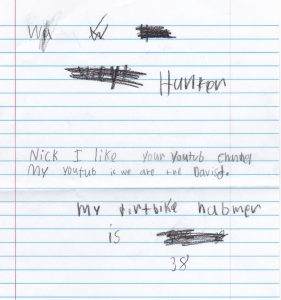 Hunter
Nick I like your youtub channel
My youtub is we are the Davids.
my dirtbike nubmer
is
38